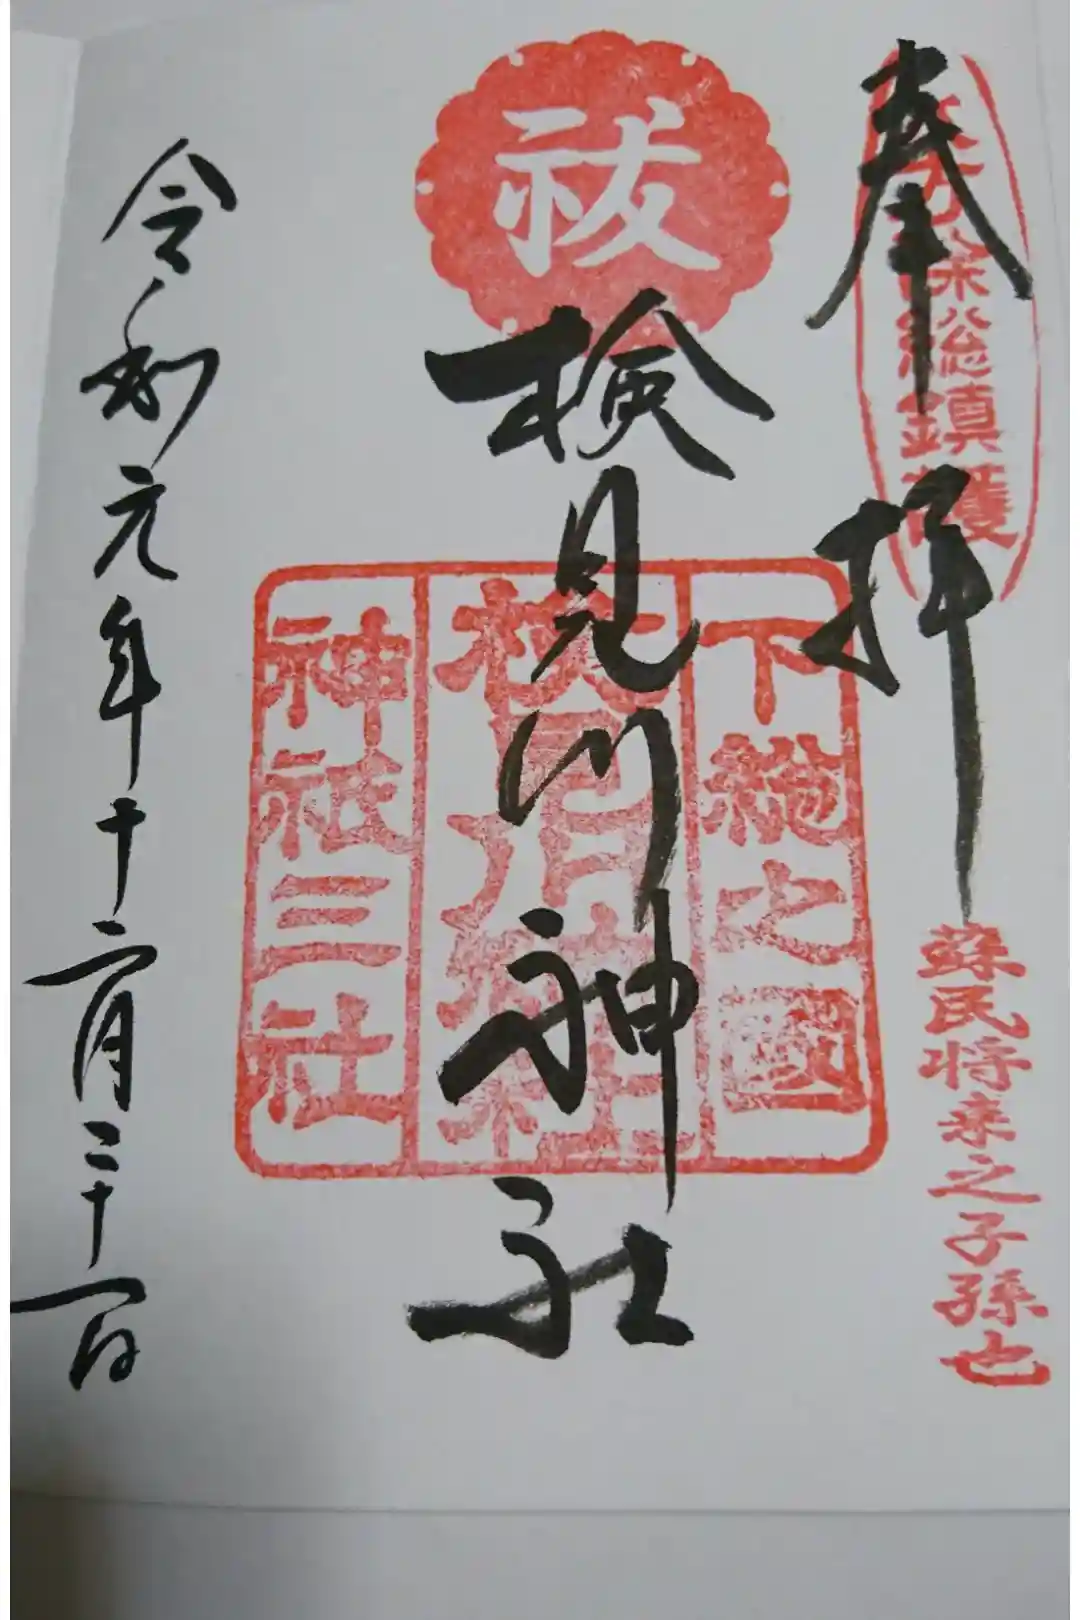 奉拝
八方除総鎮護
蘇民将来之子孫也
祓
検見川神社
下總之國
検見川神社
神祇三社
令和元年十二月二十一日